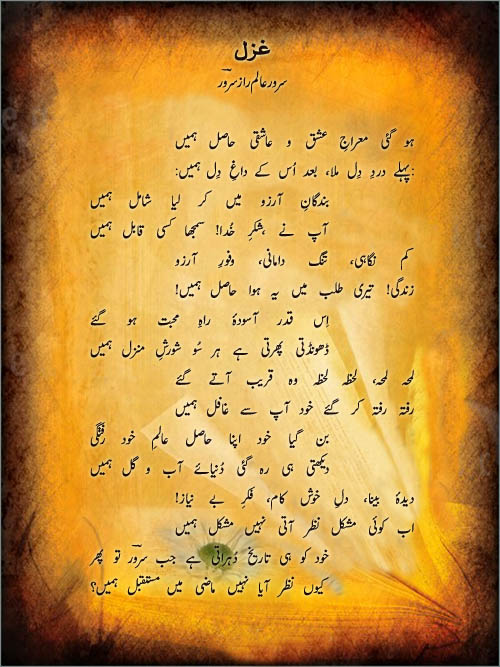 غزل
سرور عالم راز سرورؔ
ہو گئی معراجِ عشق و عاشقی حاصل ہمیں
:پہلے دردِ دِل ملا، بعد اُس کے داغِ دِل ہمیں:
بندگانِ آرزو میں کر لیا شامل ہمیں
آپ نے ،شکرِ خُدا! سمجھا کسی قابل ہمیں
کم نگاہی، تنگ دامانی، وفورِ آرزو
زندگی! تیری طلب میں یہ ہوا حاصل ہمیں!
اِس قدر آسودۂ راہِ محبت ہو گئے
ڈھونڈتی پھرتی ہے ہر سُو شورشِ منزل ہمیں
لمحہ لمحہ، لحظہ لحظہ وہ قریب آتے گئے
رفتہ رفتہ کر گئے خود آپ سے غافل ہمیں
بن گیا خود اپنا حاصل عالمِ خود رفتگی
دیکھتی ہی رہ گئی دُنیائے آب و گل ہمیں
دیدۂ بینا، دلِ خوش کام، فکرِ بے نیاز!
اب کوئی مشکل نظر آتی نہیں مشکل ہمیں
خود کو ہی تاریخ دُہراتی ہے جب سرورؔ تو پھر
کیوں نظر آیا نہیں ماضی میں مستقبل ہمیں؟